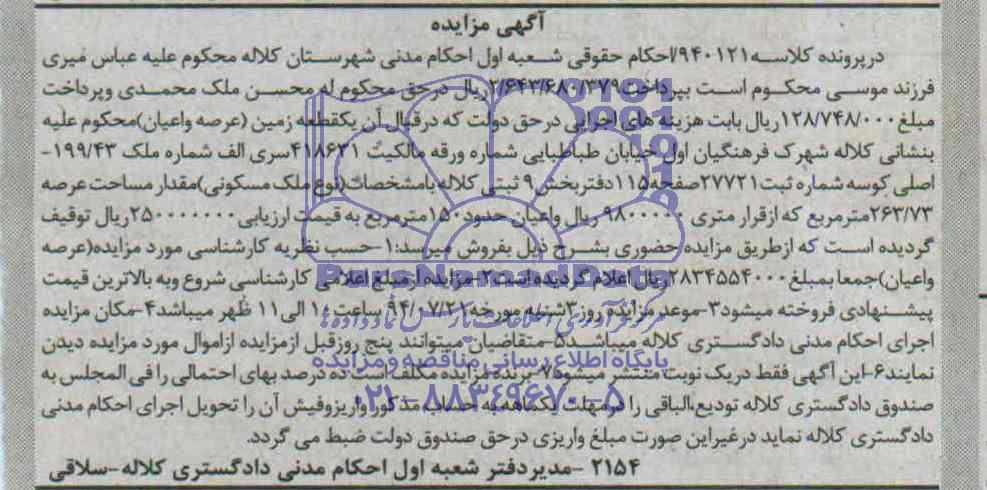 آگهی مزایده
درپرونده کلاسه۹۴۰۱۲۱/احکام حقوقی شعبه اول احکام مدنی شهرستان کلاله محکوم علیه عباس میری
فرزند موسی محکوم است بپرداخت۲/۶۴۳/۶۸۰/۳۷۹ریال درحق محکوم له محسن ملک محمدی وپرداخت
مبلغ۱۲۸/۷۴۸/۰۰۰ریال بابت هزینه های اجرایی درحق دولت که درقبال آن یکقطعه زمین (عرصه واعیان)محکوم علیه
بنشانی کلاله شهرک فرهنگیان اول خیابان طباطبایی شماره ورقه مالکیت ۴۱۸۶۳۱سری الف شماره ملک ۱۹۹/۴۳-
اصلی کوسه شماره ثبت۲۷۷۲۱صفحه۱۱۵دفتربخش۹ ثبتی کلاله بامشخصات(نوع ملک مسکونی)مقدار مساحت عرصه
۲۶۳/۷۳مترمربع که ازقرار متری ۹۸۰۰۰۰۰ریال واعیان حدود۱۵۰مترمربع به قیمت ارزیابی۲۵۰۰۰۰۰۰۰ریال توقیف
گردیده است که ازطریق مزایده حضوری بشرح ذیل بفروش میرسد:۱-حسب نظریه کارشناسی مورد مزایده(عرصه
واعیان)جمعا بمبلغ۲۸۳۴۵۵۴۰۰۰ریال اعلام گردیده است۲-مزایده ازمبلغ اعلامی کارشناسی شروع وبه بالاترین قیمت
پیشنهادی فروخته میشود۳-موعد مزایده روز۳شنبه مورخه۹۴/۰۷/۲۱ ساعت ۱۰ الی۱۱ ظهر میباشد۴-مکان مزایده
اجرای احکام مدنی دادگستری کلاله میباشد۵-متقاضیان میتوانند پنج روزقبل ازمزایده ازاموال مورد مزایده دیدن
نمایند۶-این آگهی فقط دریک نوبت منتشر میشود۷-برنده مزایده مکلف است ده درصد بهای احتمالی را فی المجلس به
صندوق دادگستری کلاله تودیع،الباقی را درمهلت یکماهه به حساب مذکور واریزوفیش آن را تحویل اجرای احکام مدنی
دادگستری کلاله نماید درغیراین صورت مبلغ واریزی درحق صندوق دولت ضبط می گردد.
۲۱۵۴ -مدیردفتر شعبه اول احکام مدنی دادگستری کلاله-سلاقی
ParsNamadData
پایگاه اطلاع رسانی مناقصه ومزایده
۰۲۱-۸۸۳۴۹۶۷۰-۵